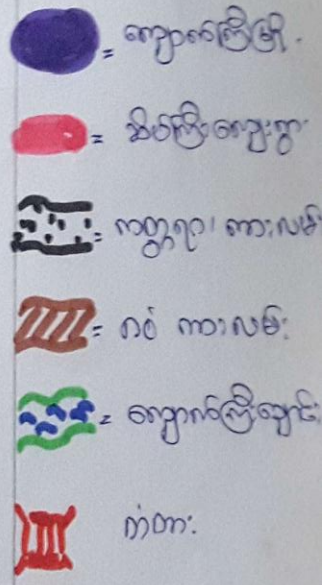 = ကျောက်ကြီးမြို့.
= ဆိပ်ကြီးကျေးရွာ
= ကတ္တရာ၊ ကားလမ်း
= ဂဝံ ကားလမ်း
= ကျောက်ကြီးချောင်း
တံတား